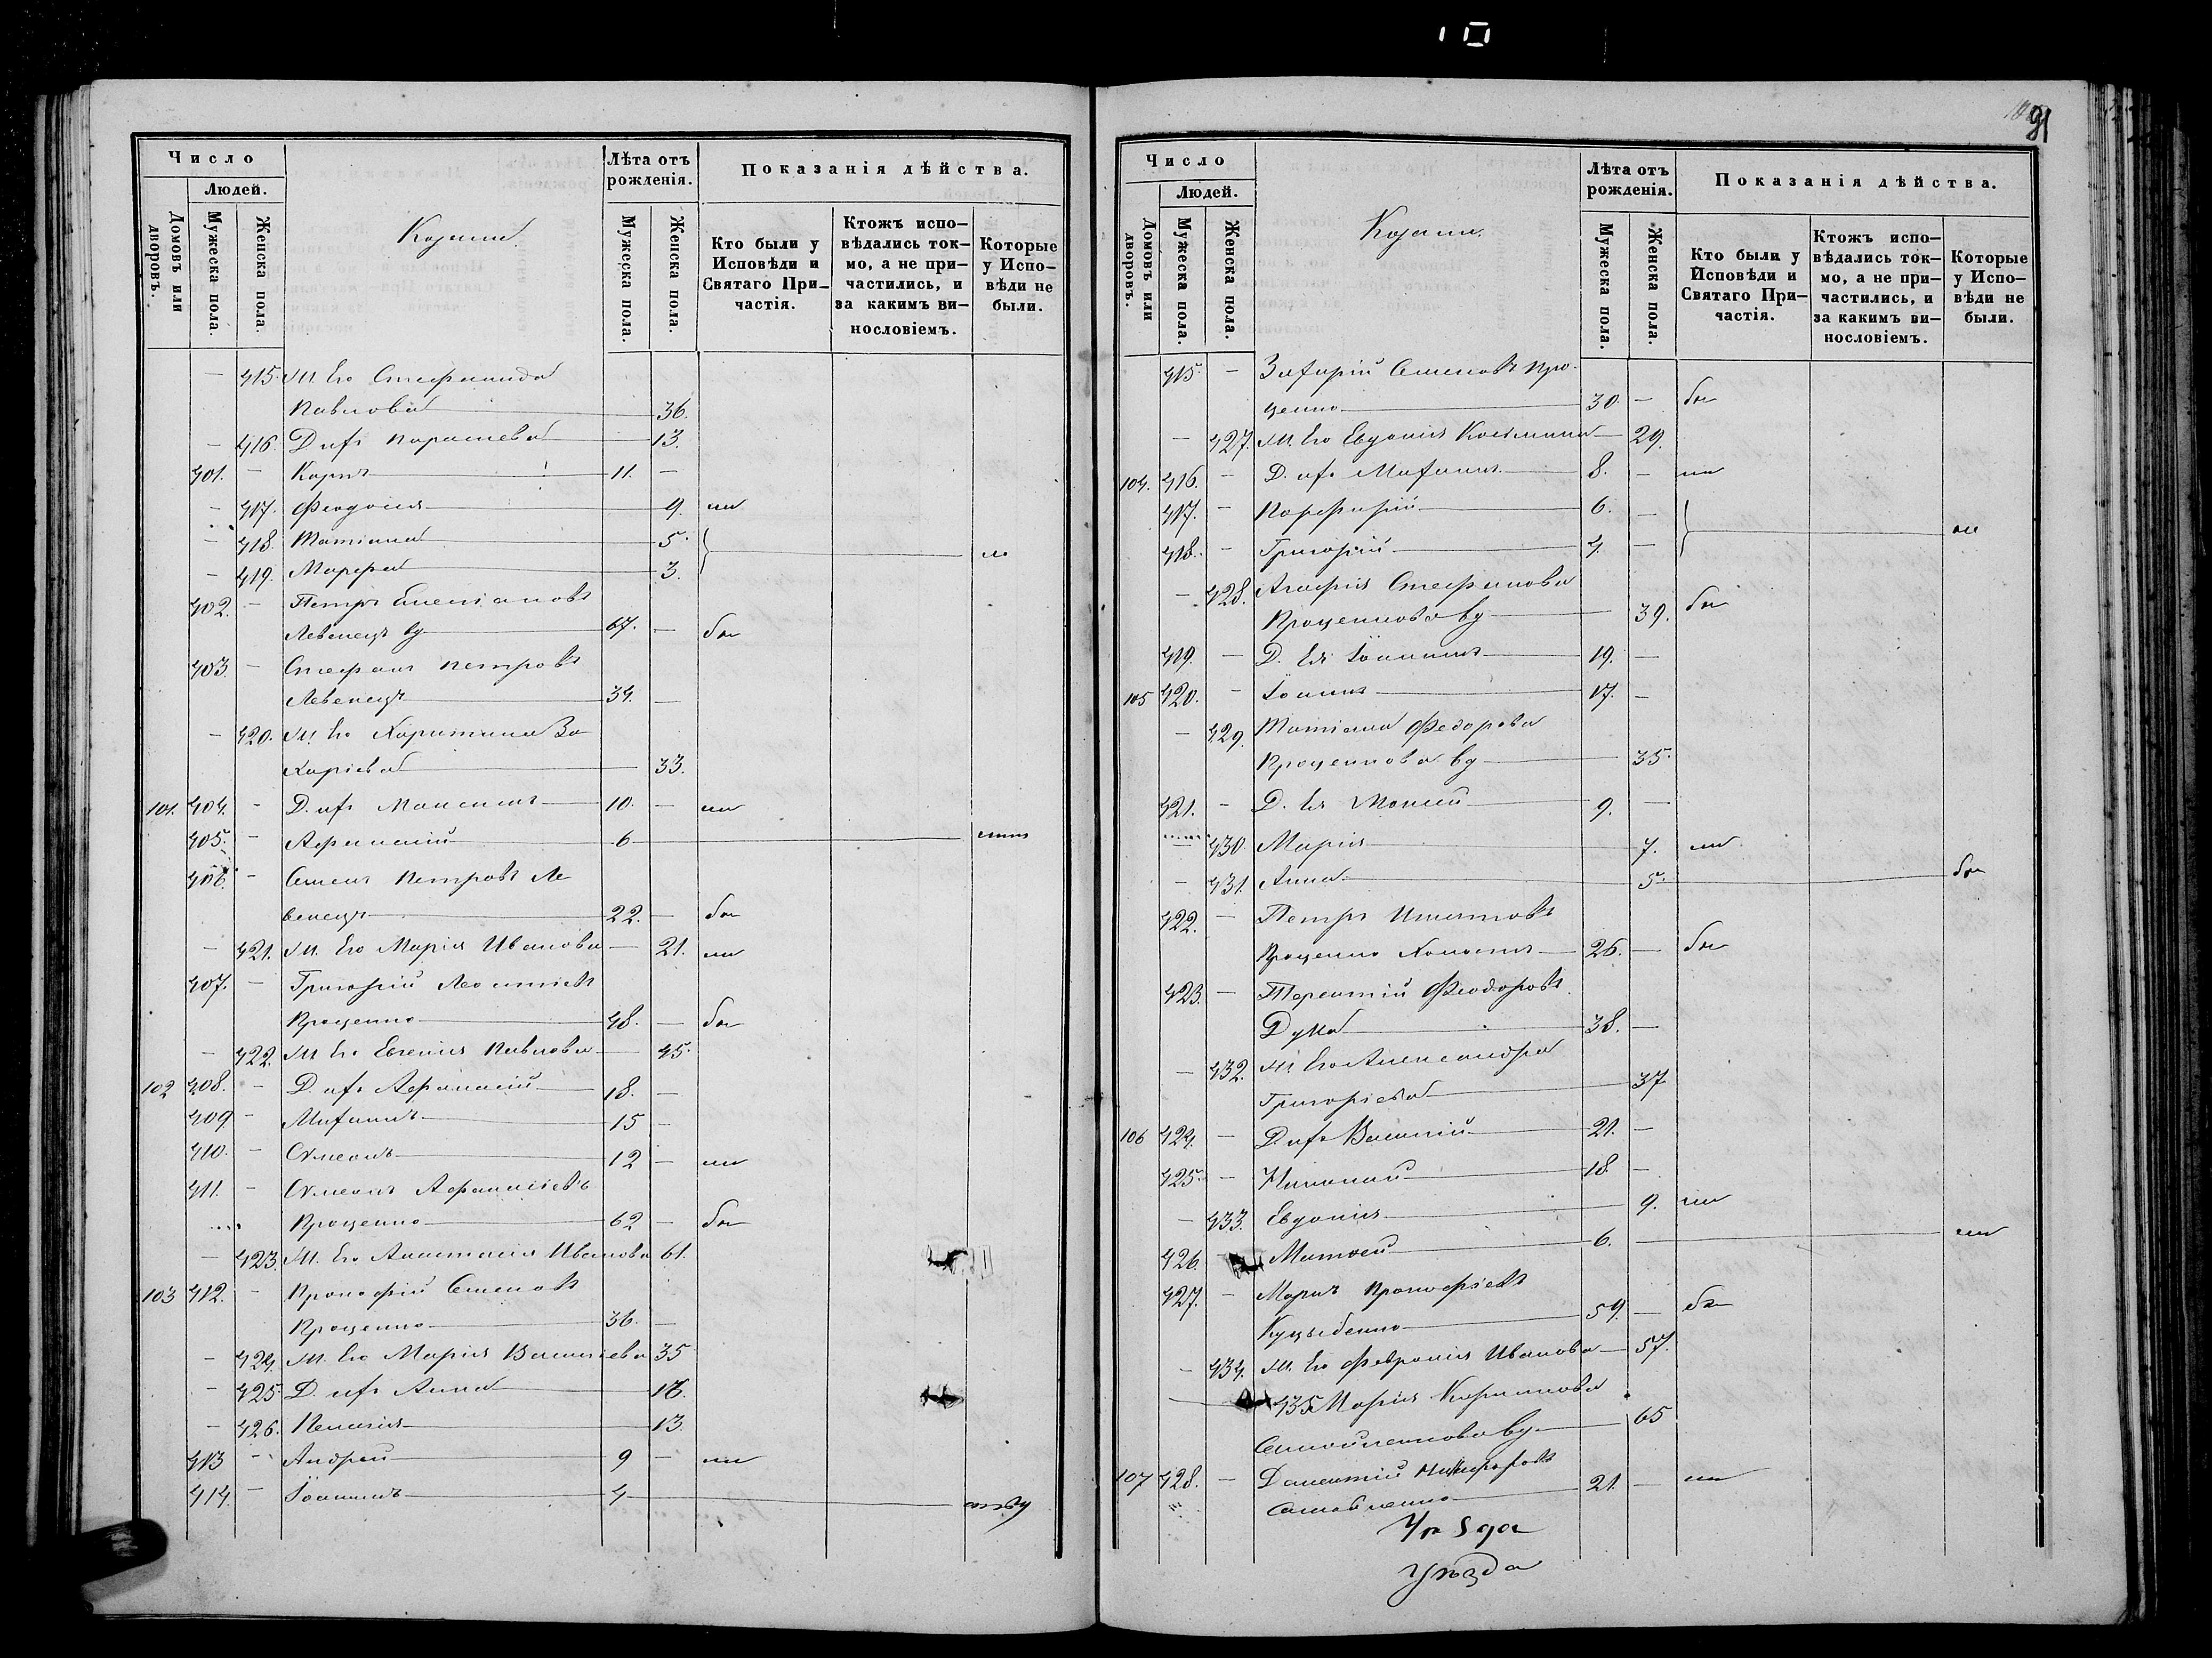 10
91
Число
Людей.
Домовъ или дворовъ.
Мужеска пола.
Женска пола.
Козаки.
Лѣта отъ рожденія.
Мужеска пола.
Женска пола.
Показанія дѣйства.
Кто были у Исповѣди и Святаго Причастія.
Ктожъ исповѣдались токмо, а не причастились, и за какимъ винословіемъ.
Которые у Исповѣди не были.
— 415. Ж. Его Стефанида
Павлова 36.
— 416. Д. ихъ Параскева 13.
401. — Карпъ 11. —
— 417. Феодосія 9.
— 418. Татіана 5.
— 419. Марфа 3.
402. — Петръ
Левенецъ вд 67. —
403. — Стефанъ Петровъ
Левенецъ 34. —
— 420. Ж. Его Харитина За
харіева 33.
101. 404. — Д. ихъ Максимъ 10. —
405. — Афанасій 6
406. — Семенъ Петровъ Ле
венецъ 22. —
— 421. Ж. Его Марія Иванова — 21.
407. — Григорій Леонтіевъ
Проценко 48. —
— 422. Ж. Его Евгенія Павлова — 45.
102 408. — Д. ихъ Афанасій 18. —
409 — Михаилъ 15 —
410. — Сѵмеонъ 12 —
411. — Сѵмеонъ Афанасіевъ
Проценко 62 —
— 423. Ж. Его Анастасія Иванова 61.
103 412. — Прокофій Семеновъ
Проценко 36. —
— 424. Ж. Его Марія Васильева 35
— 425. Д. ихъ Анна 16.
— 426. Пелагія 13.
413 — Андрей 9 —
414. — Іоаннъ 4
Число
Людей.
Домовъ или дворовъ.
Мужеска пола.
Женска пола.
Козаки.
Лѣта отъ рожденія.
Мужеска пола.
Женска пола.
Показанія дѣйства.
Кто были у Исповѣди и Святаго Причастія.
Ктожъ исповѣдались токмо, а не причастились, и за какимъ винословіемъ.
Которые у Исповѣди не были.
415. — Захарій Семеновъ Про-
ценко 30. —
— 427. Ж. Его Евдокія Косьмина — 29.
104. 416. — Д. ихъ Михаилъ 8. —
417. — Порфирій 6. —
418. — Григорій 4. —
— 428. Агафія Стефанова
Проценкова вд 39.
419. — Д. Ея Іоаннъ 19. —
105 420. — Іоаннъ 17. —
— 429. Татіана Федорова
Проценкова вд 35.
421. — Д. Ея Моисей 9. —
— 430. Марія 7.
— 431. Анна 5.
422. — Петръ Игнатовъ
Проценко Холостъ 26. —
423. — Терентій Феодоровъ
Дума 38. —
— 432. Ж. Его Александра
Григоріева 37
106 424. — Д. ихъ Василій 21. —
425. — Николай 18. —
— 433. Евдокія 9.
426. Матѳей 6.
427. — Маркъ Прокофіевъ
Куцыбенко 59. —
— 434. Ж. Его Февронія Иванова — 57.
435 Марія
Самойленкова вд 65
107 428. — Никифоровъ
21. —
Уѣзда
Уѣзда